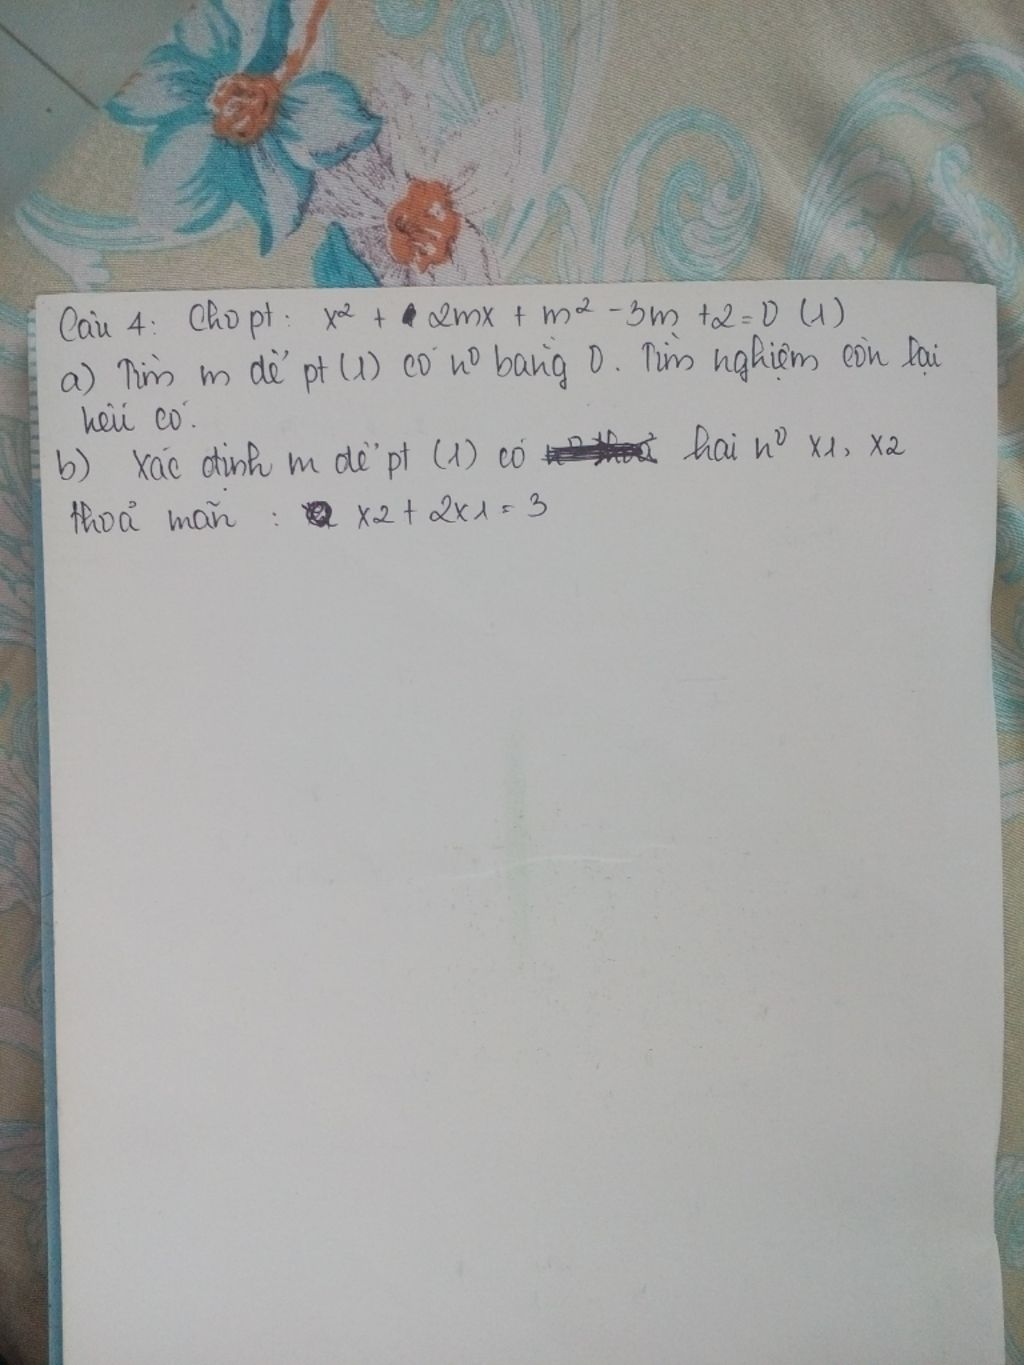 Câu 4: Cho pt: x² + 2mx + m² - 3m + 2 = 0 (1)
a) Tìm m để pt (1) có n⁰ bằng 0. Tìm nghiệm còn lại
nếu có.
b) Xác định m để pt (1) có hai n⁰ x1, x2
thoả mãn : x2 + 2x1 = 3